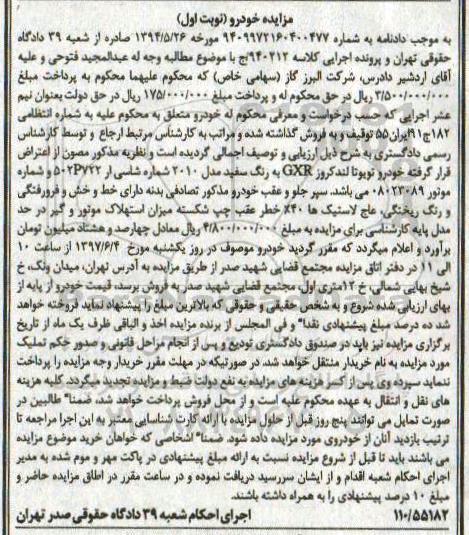 مزایده خودرو (نوبت اول)
به موجب دادنامه به شماره ۹۴۰۹۹۷۲۱۶۰۴۰۰۴۷۷ مورخه ۱۳۹۴/۵/۲۶ صادره از شعبه ۳۹ دادگاه
حقوقی تهران و پرونده اجرایی کلاسه ۹۴۰۲۱۲/ج با موضوع مطالبه وجه له عبدالمجید فتوحی و علیه
آقای اردشیر دادرس، شرکت البرز گاز (سهامی خاص) که محکوم علیهما محکوم به پرداخت مبلغ
۳/۵۰۰/۰۰۰/۰۰۰ ریال در حق محکوم له و پرداخت مبلغ ۱۷۵/۰۰۰/۰۰۰ ریال در حق دولت بعنوان نیم
عشر اجرایی که حسب درخواست و معرفی محکوم له خودرو متعلق به محکوم علیه به شماره انتظامی
۱۸۲ج۹۱ایران ۵۵ توقیف و به فروش گذاشته شده و مراتب به کارشناس مرتبط ارجاع و توسط کارشناس
رسمی دادگستری به شرح ذیل ارزیابی و توصیف اجمالی گردیده است و نظریه مذکور مصون از اعتراض
قرار گرفته خودرو تویوتا لندکروز GXR به رنگ سفید مدل ۲۰۱۰ شماره شاسی از ۵۰۲۲P۷۲۲ و شماره
موتور ۰۸۰۲۳۰۸۹ می باشد. سپر جلو و عقب خودرو مذکور تصادفی بدنه دارای خط و خش و فرورفتگی
و رنگ ریختگی، عاج لاستیک ها ۴۰٪ خطر عقب چپ شکسته میزان استهلاک موتور و گیر در حد
مدل پایه کارشناسی برای مزایده به مبلغ ۴/۸۰۰/۰۰۰/۰۰۰ ریال معادل چهارصد و هشتاد میلیون تومان
برآورد و اعلام میگردد که مقرر گردید خودرو موصوف در روز یکشنبه مورخ ۱۳۹۷/۶/۴ از ساعت ۱۰
الی ۱۱ در دفتر اتاق مزایده مجتمع قضایی شهید صدر از طریق مزایده به آدرس تهران، میدان ونک، خ
شیخ بهایی شمالی، خ ۱۲متری اول، مجتمع قضایی شهید صدر به فروش برسد، قیمت خودرو از پایه از
بهای ارزیابی شده شروع و به شخص حقیقی و حقوقی که بالاترین مبلغ را پیشنهاد نماید فروخته خواهد
شد ده درصد مبلغ پیشنهادی نقدا" و فی المجلس از برنده مزایده اخذ و الباقی ظرف یک ماه از تاریخ
برگزاری مزایده نیز باید در صندوق دادگستری تودیع و پس از انجام مراحل قانونی و صدور حکم تملیک
مورد مزایده به نام خریدار منتقل خواهد شد، در صورتیکه در مهلت مقرر خریدار وجه مزایده را پرداخت
ننماید سپرده وی پس از کسر هزینه های مزایده به نفع دولت ضبط و مزایده تجدید میگردد. کلیه هزینه
های نقل و انتقال به عهده محکوم علیه است و از محل فروش پرداخت خواهد شد، ضمنا" طالبین در
صورت تمایل می توانند پنج روز قبل از حلول مزایده با ارائه کارت شناسایی معتبر به این اجرا مراجعه تا
ترتیب بازدید آنان از خودروی مورد مزایده داده شود. ضمنا" اشخاصی که خواهان خرید موضوع مزایده
می باشند باید تا قبل از شروع مزایده نسبت به ارائه مبلغ پیشنهادی در پاکت مهر و موم شده به مدیر
اجرای احکام شعبه اقدام و از ایشان سررسید دریافت نموده و در ساعت مقرر در اطاق مزایده حاضر و
مبلغ ۱۰ درصد پیشنهادی را به همراه داشته باشند.
۱۱۰/۵۵۱۸۲ اجرای احکام شعبه ۳۹ دادگاه حقوقی صدر تهران